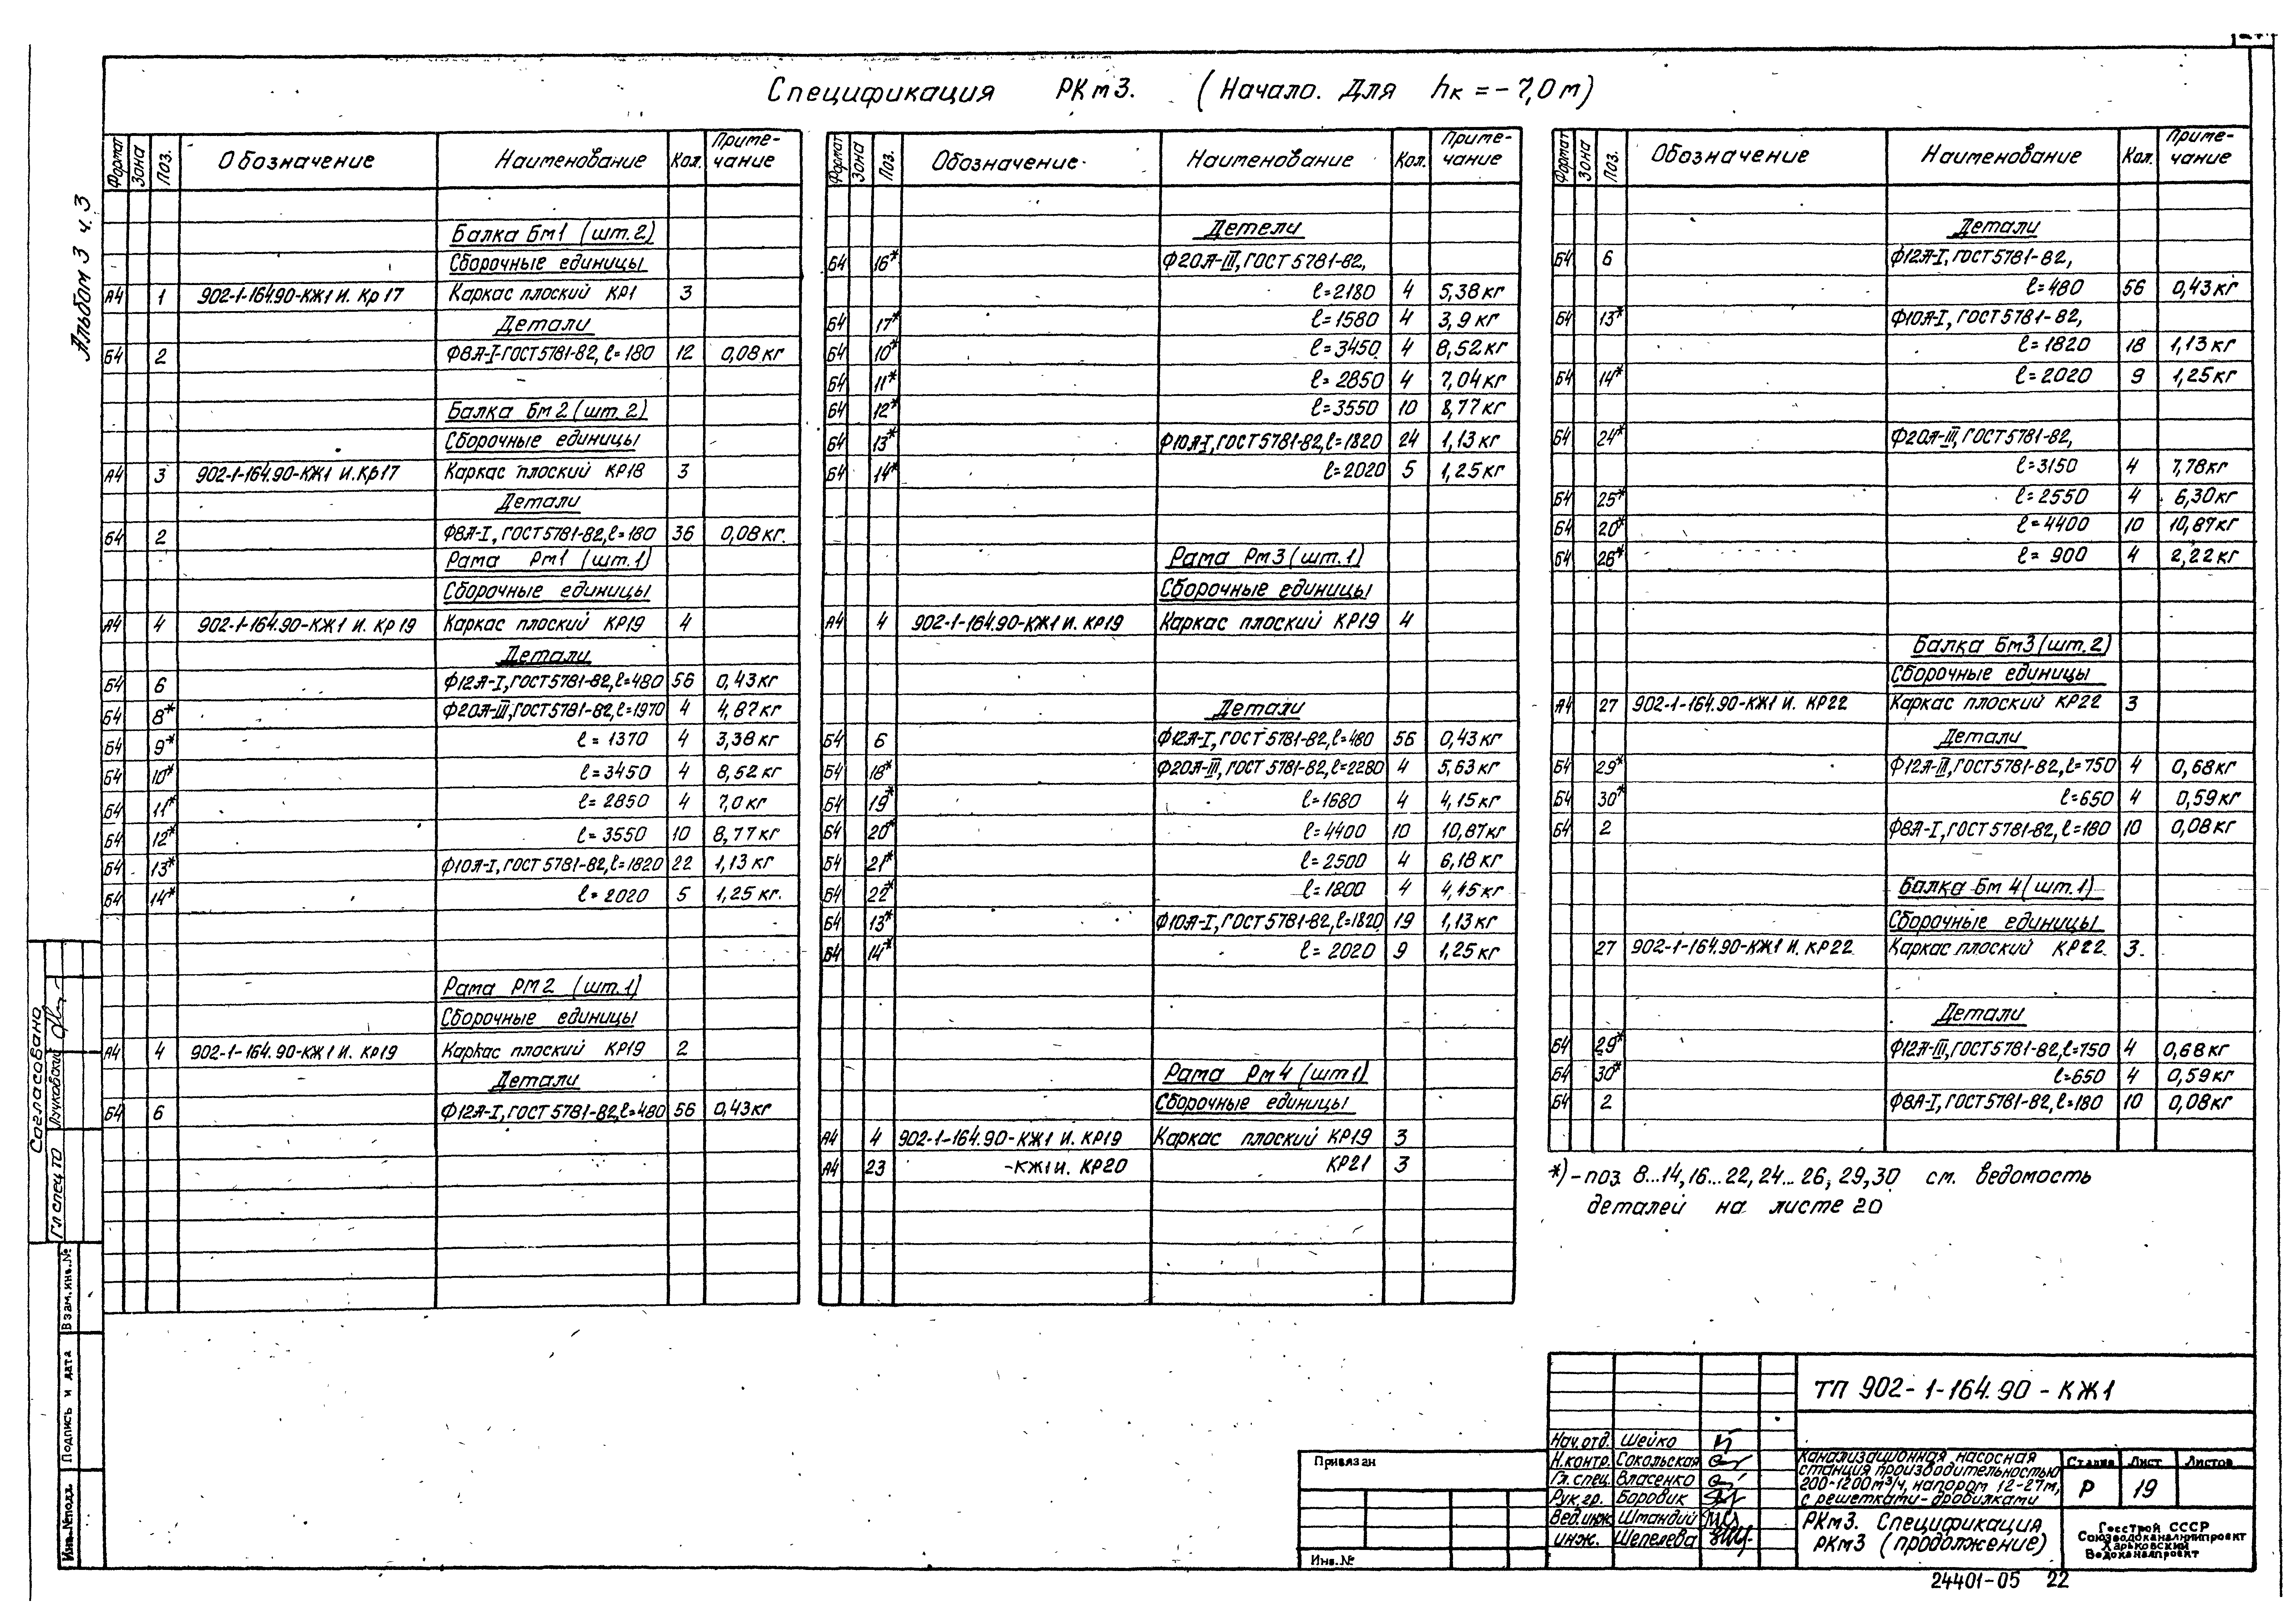 Альбом 3 ч.3
Спецификация РКм3. (Начало. Для hк = -7,0 м)
Формат Зона Поз. Обозначение Наименование Кол. Приме-чание
Балка Бм1 (шт.2)
Сборочные единицы
А4 1 902-1-164.90-КЖ1 И. Кр17 Каркас плоский КР1 3
Детали
Б4 2 Ф8А-I-ГОСТ 5781-82, ℓ=180 12 0,08 кг
Балка Бм2 (шт.2)
Сборочные единицы
А4 3 902-1-164.90-КЖ1 И.Кр17 Каркас плоский КР18 3
Детали
Б4 2 Ф8А-I, ГОСТ 5781-82, ℓ=180 36 0,08 кг.
Рама Рм1 (шт.1)
Сборочные единицы
А4 4 902-1-164.90-КЖ1 И. Кр19 Каркас плоский КР19 4
Детали
Б4 6 Ф12А-I, ГОСТ 5781-82, ℓ=480 56 0,43 кг
Б4 8* Ф20А-III, ГОСТ 5781-82, ℓ=1970 4 4,87 кг
Б4 9* ℓ=1370 4 3,38 кг
Б4 10* ℓ=3450 4 8,52 кг
Б4 11* ℓ=2850 4 7,0 кг
Б4 12* ℓ=3550 10 8,77 кг
Б4 13* Ф10А-I, ГОСТ 5781-82, ℓ=1820 22 1,13 кг
Б4 14* ℓ=2020 5 1,25 кг.
Рама РМ2 (шт.1)
Сборочные единицы
А4 4 902-1-164.90-КЖ1 И. Кр19 Каркас плоский КР19 2
Детали
Б4 6 Ф12А-I, ГОСТ 5781-82, ℓ=480 56 0,43 кг
Формат Зона Поз. Обозначение Наименование Кол. Приме-чание
Детели
Б4 16* Ф20А-III, ГОСТ 5781-82,
ℓ=2180 4 5,38 кг
Б4 17* ℓ=1580 4 3,9 кг
Б4 10* ℓ=3450 4 8,52 кг
Б4 11* ℓ=2850 4 7,04 кг
Б4 12* ℓ=3550 10 8,77 кг
Б4 13* Ф10А-I, ГОСТ 5781-82, ℓ=1820 24 1,13 кг
Б4 14* ℓ=2020 5 1,25 кг
Рама Рм3 (шт.1)
Сборочные единицы
А4 4 902-1-164.90-КЖ1 И. КР19 Каркас плоский КР19 4
Детали
Б4 6 Ф12А-I, ГОСТ 5781-82, ℓ=480 56 0,43 кг
Б4 18* Ф20А-III, ГОСТ 5781-82, ℓ=2280 4 5,63 кг
Б4 19* ℓ=1680 4 4,15 кг
Б4 20* ℓ=4400 10 10,87 кг
Б4 21* ℓ=2500 4 6,18 кг
Б4 22* ℓ=1800 4 4,45 кг
Б4 13* Ф10А-I, ГОСТ 5781-82, ℓ=1820 19 1,13 кг
Б4 14* ℓ=2020 9 1,25 кг
Рама Рм4 (шт1)
Сборочные единицы
А4 4 902-1-164.90-КЖ1 И. КР19 Каркас плоский КР19 3
А4 23 -КЖ1 И. КР20 КР21 3
Формат Зона Поз. Обозначение Наименование Кол. Приме-чание
Детали
Б4 6 Ф12А-I, ГОСТ 5781-82,
ℓ=480 56 0,43 кг
Б4 13* Ф10А-I, ГОСТ 5781-82,
ℓ=1820 18 1,13 кг
Б4 14* ℓ=2020 9 1,25 кг
Б4 24* Ф20А-III, ГОСТ 5781-82,
ℓ=3150 4 7,78 кг
Б4 25* ℓ=2550 4 6,30 кг
Б4 20* ℓ=4400 10 10,87 кг
Б4 26* ℓ=900 4 2,22 кг
Балка Бм3 (шт.2)
Сборочные единицы
А4 27 902-1-164.90-КЖ1 И. КР22 Каркас плоский КР22 3
Детали
Б4 29* Ф12А-III, ГОСТ 5781-82, ℓ=750 4 0,68 кг
Б4 30* ℓ=650 4 0,59 кг
Б4 2 Ф8А-I, ГОСТ 5781-82, ℓ=180 10 0,08 кг
Балка Бм 4 (шт.1)
Сборочные единицы
27 902-1-164.90-КЖ1 И. КР22 Каркас плоский КР22. 3.
Детали
Б4 29* Ф12А-III, ГОСТ 5781-82, ℓ=750 4 0,68 кг
Б4 30* ℓ=650 4 0,59 кг
Б4 2 Ф8А-I, ГОСТ 5781-82, ℓ=180 10 0,08 кг
*) - поз 8...14, 16...22, 24...26, 29, 30 см. ведомость
деталей на листе 20
Согласовано
Гл спец ТО Лучковский
Взам.инв.№
Подпись и дата
Инв.№подл.
Привязан
Инв.№
ТП 902-1-164.90-КЖ1
Нач.отд. Шейко
Н.контр. Сокольская
Гл.спец. Власенко
Рук.гр. Боровик
Вед.инж Штандий
инж. Шепелева
Канализационная насосная
станция производительностью
200-1200м³/ч, напором 12-27м,
с решетками-дробилками
Стадия Лист Листов
Р 19
РКм3. Спецификация
РКм3 (продолжение)
Госстрой СССР
Союзводоканалниипроект
Харьковский
Водоканалпроект
24401-05 22